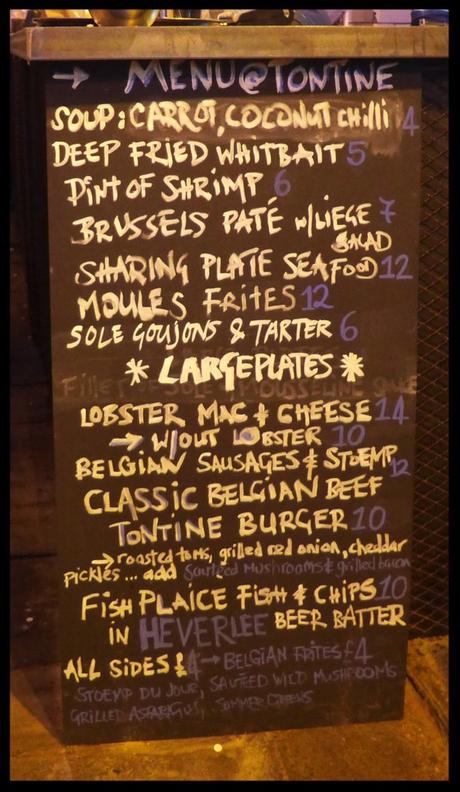 → MENU@TONTINE
SOUP: CARROT, COCONUT CHILLI 4
DEEP FRIED WHITBAIT 5
PINT OF SHRIMP 6
BRUSSELS PATÉ W/LIEGE 7
SALAD
SHARING PLATE SEAFOOD 12
MOULES FRITES 12
SOLE GOUJONS & TARTER 6
* LARGEPLATES *
LOBSTER MAC & CHEESE 14
→ W/OUT LOBSTER 10
BELGIAN SAUSAGES & STOEMP 12
CLASSIC BELGIAN BEEF
TONTINE BURGER 10
→ roasted toms, grilled red onion, cheddar
pickles... add sauteed mushrooms & grilled bacon
FISH PLAICE FISH & CHIPS 10
IN HEVERLEE BEER BATTER
ALL SIDES £4 → BELGIAN FRITES £4
STOEMP DU JOUR, SAUTÉED WILD MUSHROOMS
GRILLED ASPARAGUS, SUMMER GREENS